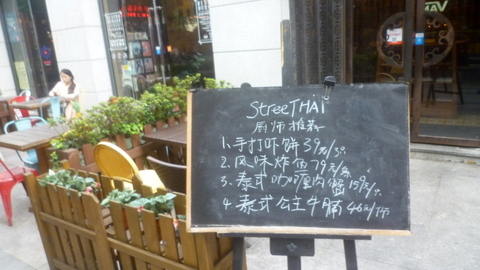 StreeTHAi
厨师推荐
1、手打虾饼 39元/3只
2、风味炸鱼 79元/条
3、泰式咖喱肉蟹 159元/只
4、泰式公主牛腩 46元/份